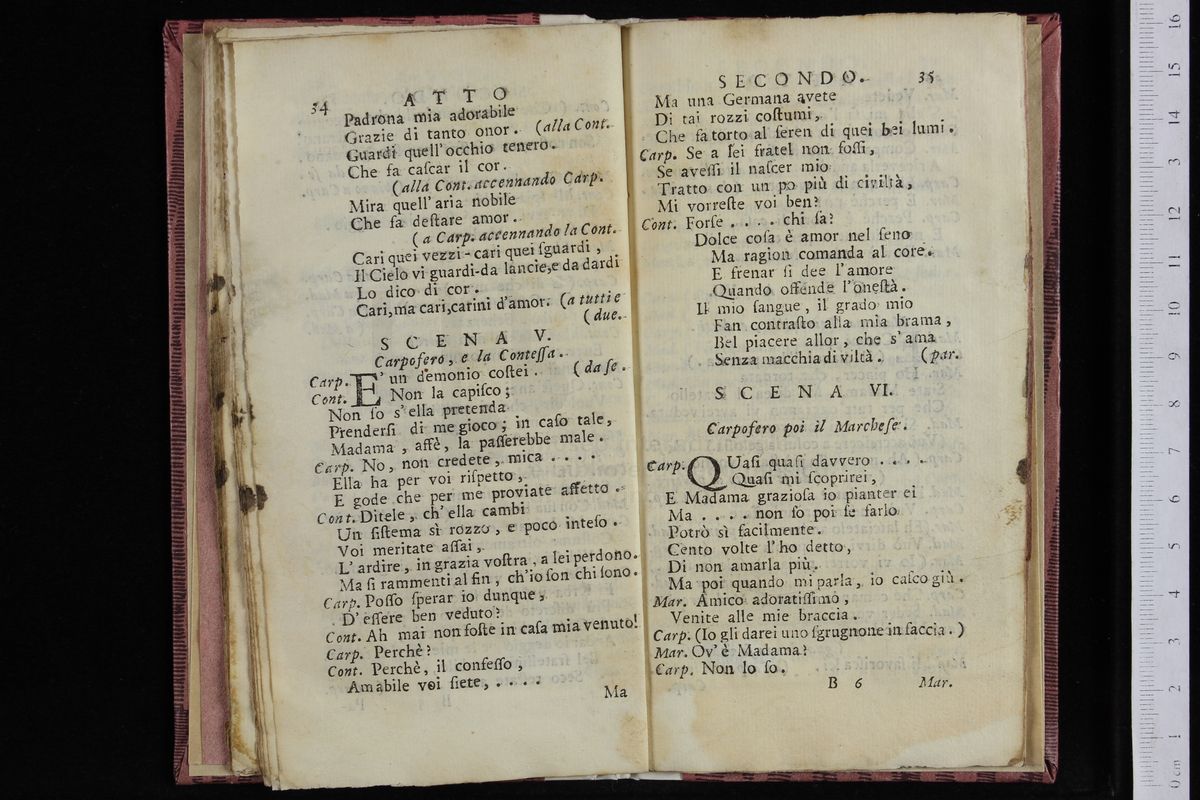 34 ATTO
Padrona mia adorabile
Grazie di tanto onor. (alla Cont.
Guardi quell'occhio tenero.
Che fa caſcar il cor.
(alla Cont. accennando Carp.
Mira quell'aria nobile
Che fa deſtare amor.
(a Carp. accennando la Cont.
Cari quei vezzi - cari quei ſguardi,
Il Cielo vi guardi-da lancie,e da dardi
Lo dico di cor.
Cari,ma cari,carini d'amor. (a tutti e
(due.
SCENA V.
Carpofero, e la Conteſſa.
Carp. E' un demonio coſtei. (da ſe.
Cont. Non la capiſco;
Non ſo s'ella pretenda
Prenderſi di me gioco; in caſo tale,
Madama, affè, la paſſerebbe male.
Carp. No, non credete, mica ....
Ella ha per voi riſpetto,
E gode che per me proviate affetto.
Cont. Ditele, ch'ella cambi
Un ſiſtema sì rozzo, e poco inteſo.
Voi meritate aſſai,
L'ardire, in grazia voſtra, a lei perdono.
Ma ſi rammenti al fin, ch'io ſon chi ſono.
Carp. Poſſo ſperar io dunque,
D'eſſere ben veduto?
Cont. Ah mai non foſte in caſa mia venuto!
Carp. Perchè?
Cont. Perchè, il confeſſo,
Amabile voi ſiete, ....
Ma
SECONDO. 35
Ma una Germana avete
Di tai rozzi coſtumi,
Che fa torto al ſeren di quei bei lumi.
Carp. Se a lei fratel non foſſi,
Se aveſſi il naſcer mio
Tratto con un po più di civiltà,
Mi vorreſte voi ben?
Cont. Forſe .... chi ſa?
Dolce coſa è amor nel ſeno
Ma ragion comanda al core.
E frenar ſi dee l'amore
Quando offende l'oneſtà.
Il mio ſangue, il grado mio
Fan contraſto alla mia brama,
Bel piacere allor, che s'ama
Senza macchia di viltà. (par.
SCENA VI.
Carpofero poi il Marcheſe.
Carp. QUaſi quaſi davvero ....
Quaſi mi ſcoprirei,
E Madama grazioſa io pianter ei
Ma .... non ſo poi ſe farlo
Potrò sì facilmente.
Cento volte l'ho detto,
Di non amarla più.
Ma poi quando mi parla, io caſco giù.
Mar. Amico adoratiſſimo,
Venite alle mie braccia.
Carp. (Io gli darei uno ſgrugnone in faccia.)
Mar. Ov'è Madama?
Carp. Non lo ſo.
B 6 Mar.
0 cm 1 2 3 4 5 6 7 8 9 10 11 12 13 14 15 16